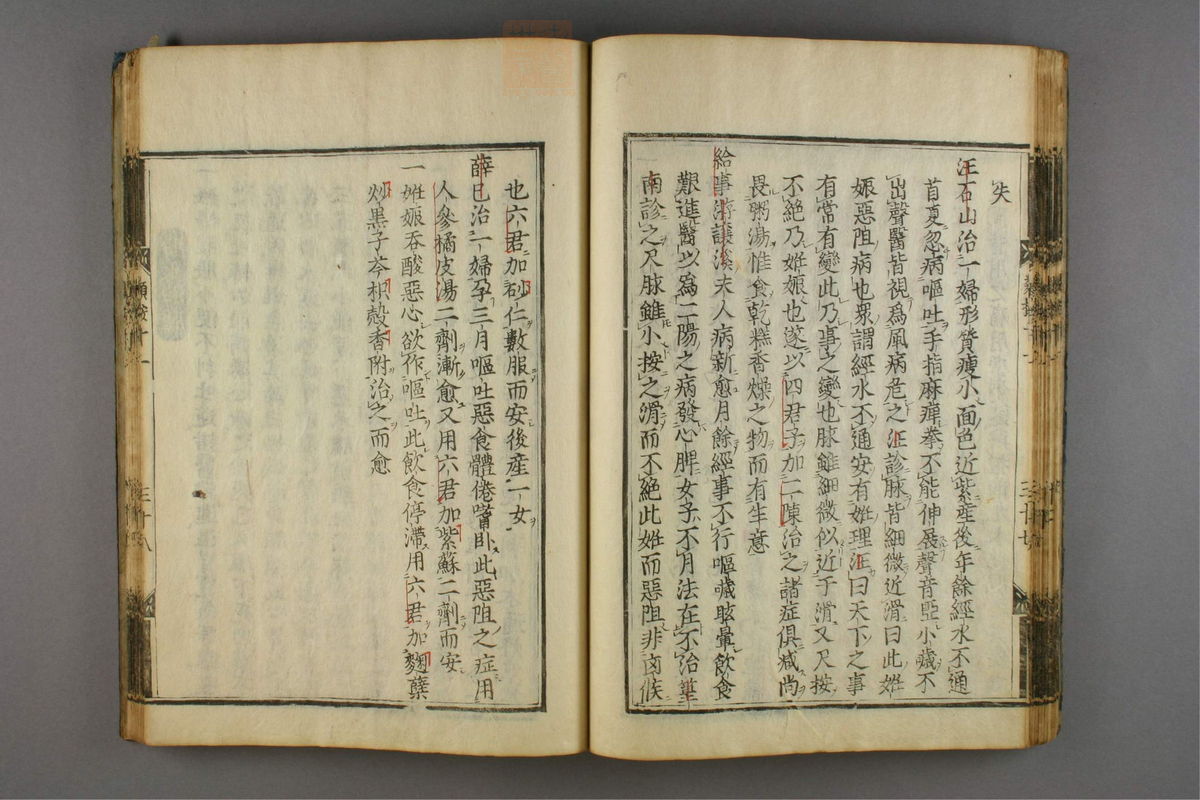 失
汪石山治一婦形質瘦小面色近紫産後年餘經水不通
首夏忽病嘔吐手指麻痺拳不能伸展聲音啞小噦不
出聲醫皆視爲風病危之汪診脉皆細微近滑曰此姙
娠惡阻病也衆謂經水不通安有姙理汪曰天下之事
有常有變此乃事之變也脉雖細微似近于滑又尺按
不絶乃姙娠也遂以四君子加二陳治之諸症俱減尚
畏粥湯惟食乾糕香燥之物而有生意
給事游讓溪夫人病新愈月餘經事不行嘔噦眩暈飲食
艱進醫以爲二陽之病發心脾女子不月法在不治
南診之尺脉雖小按之滑而不絶此姙而惡阻非凾候
也六君加砂仁數服而安後産一女
薛已治一婦孕三月嘔吐惡食體倦嗜卧此惡阻之症用
人參橘皮湯二劑漸愈又用六君加紫蘇二劑而安
一姙娠吞酸惡心欲作嘔吐此飲食停滯用六君加麴蘖
炒黑子芩枳殼香附治之而愈
三十八